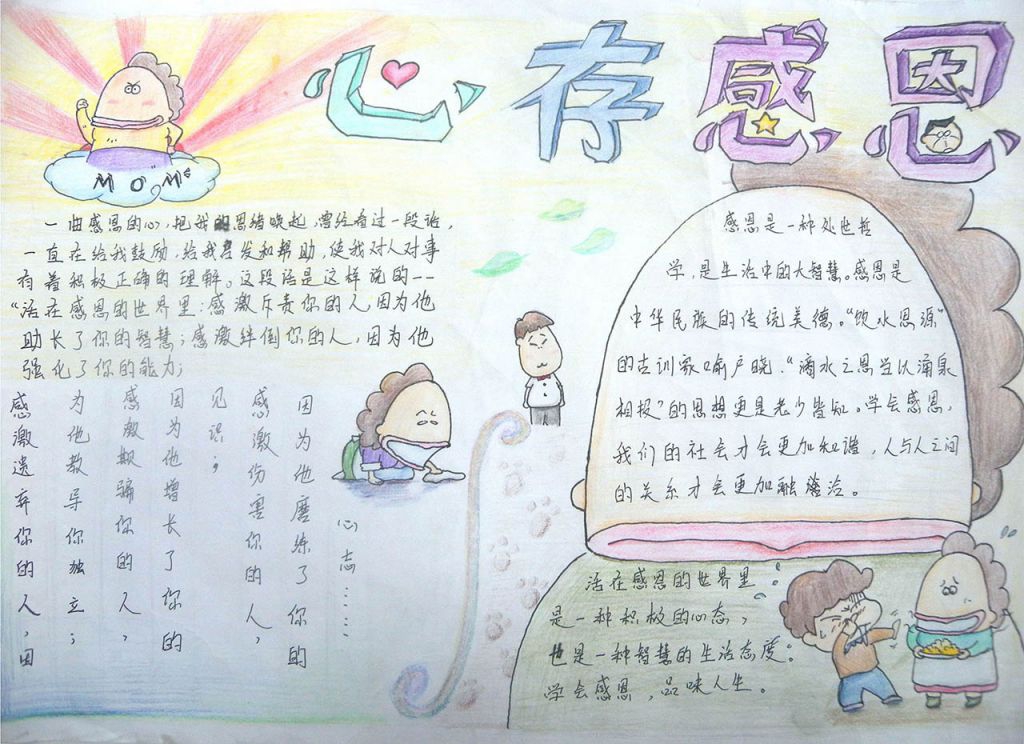 心存感恩
MOM
一曲感恩的心,把我的思绪唤起,曾经看过一段话,
一直在给我鼓励,给我启发和帮助,使我对人对事
有着积极正确的理解。这段话是这样说的——
“活在感恩的世界里:感激斥责你的人,因为他
助长了你的智慧;感激绊倒你的人,因为他
强化了你的能力;
感激遗弃你的人,因
为他教导你独立;
感激欺骗你的人,
因为他增长了你的
见识;
感激伤害你的人,
因为他磨练了你的
心态……
感恩是一种处世哲
学,是生活中的大智慧。感恩是
中华民族的传统美德。“饮水思源”
的古训家喻户晓,“滴水之恩当以涌泉
相报”的思想更是老少皆知。学会感恩,
我们的社会才会更加和谐,人与人之间
的关系才会更加融洽。
活在感恩的世界里:
是一种积极的心态,
也是一种智慧的生活态度。
学会感恩,品味人生。